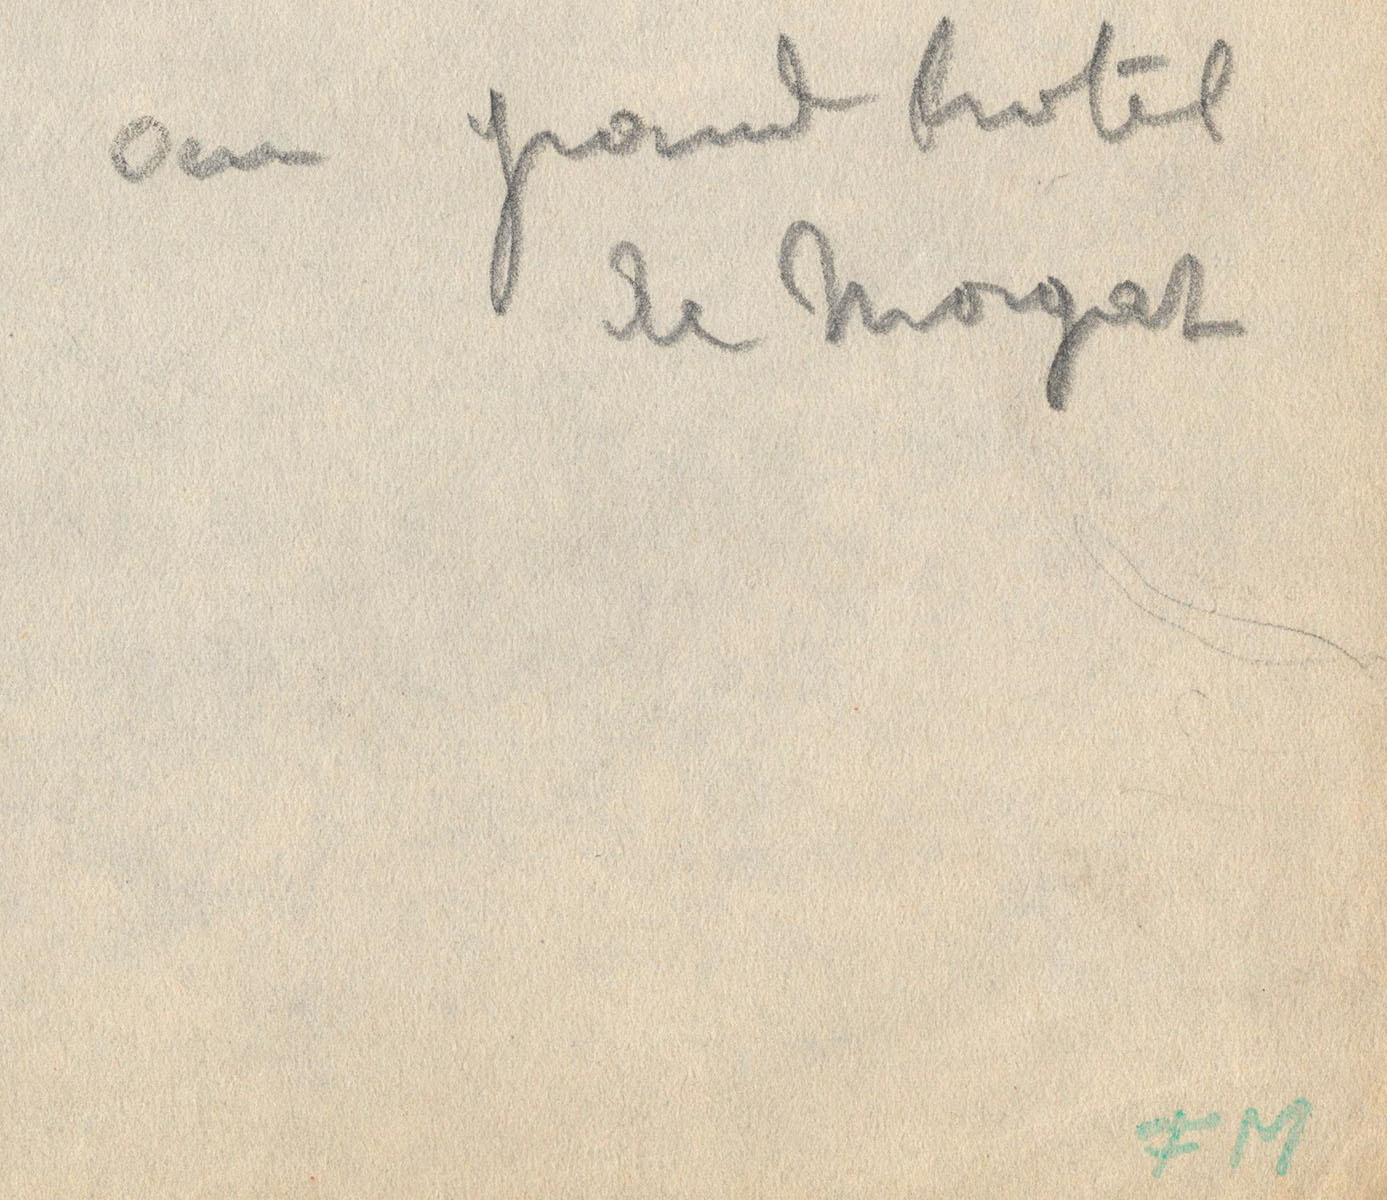 au grand hotel
de Morgat
FM